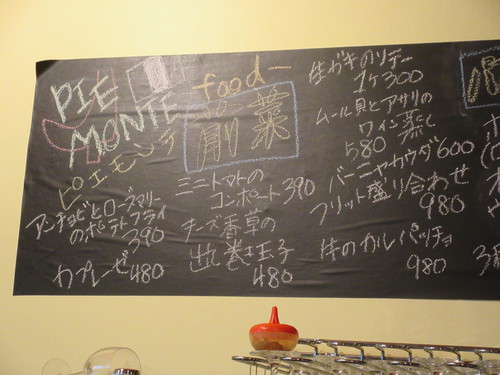 PIE
MONTE
ピエモンテ
アンチョビとローズマリー
のポテトフライ
390
カプレーゼ 480
food
前菜
ミニトマトの
コンポート 390
チーズ香草の
出し巻き玉子
480
生ガキのソテー
1ケ 300
ムール貝とアサリの
ワイン蒸し
580
バーニャカウダ 600
フリット盛り合わせ
980
牛のカルパッチョ
980